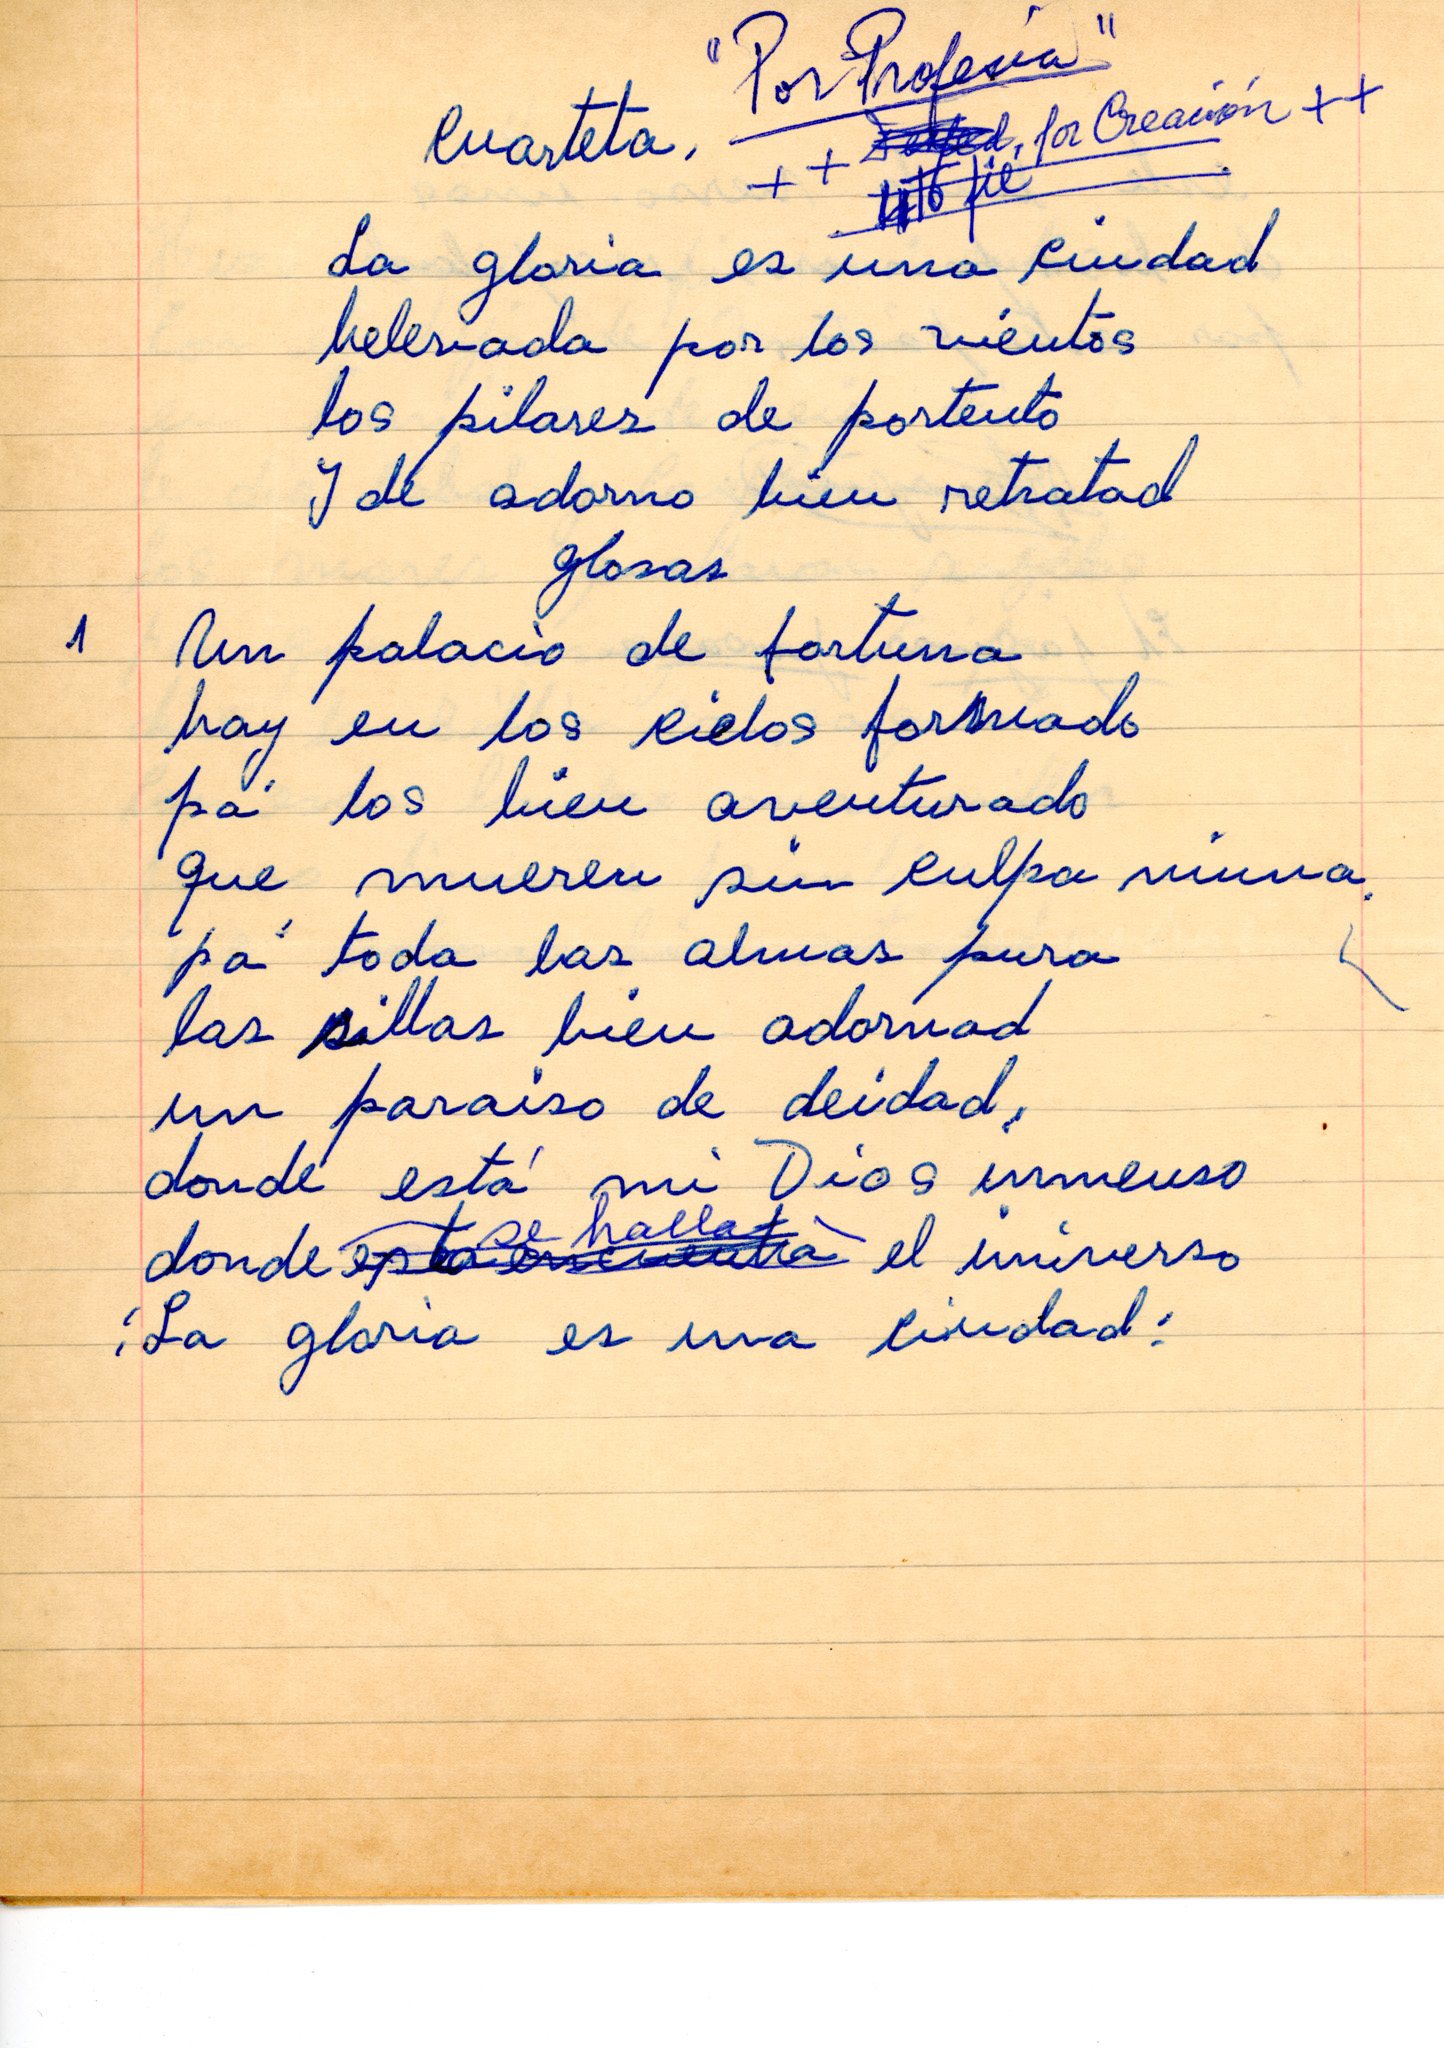 "Por Profesía"
Cuarteta.
++ por Creación ++
La gloria es una ciudad
helevada por los vientos
los pilares de portento
Y de adorno bien retratad
glosas
1 Un palacio de fortuna
hay en los cielos formado
pa' los bien aventurado
que mueren sin culpa niuna.
pa' toda las almas pura
las sillas bien adornad
un paraiso de deidad,
donde está mi Dios inmenso
donde se halla el universo
¡La gloria es una ciudad!